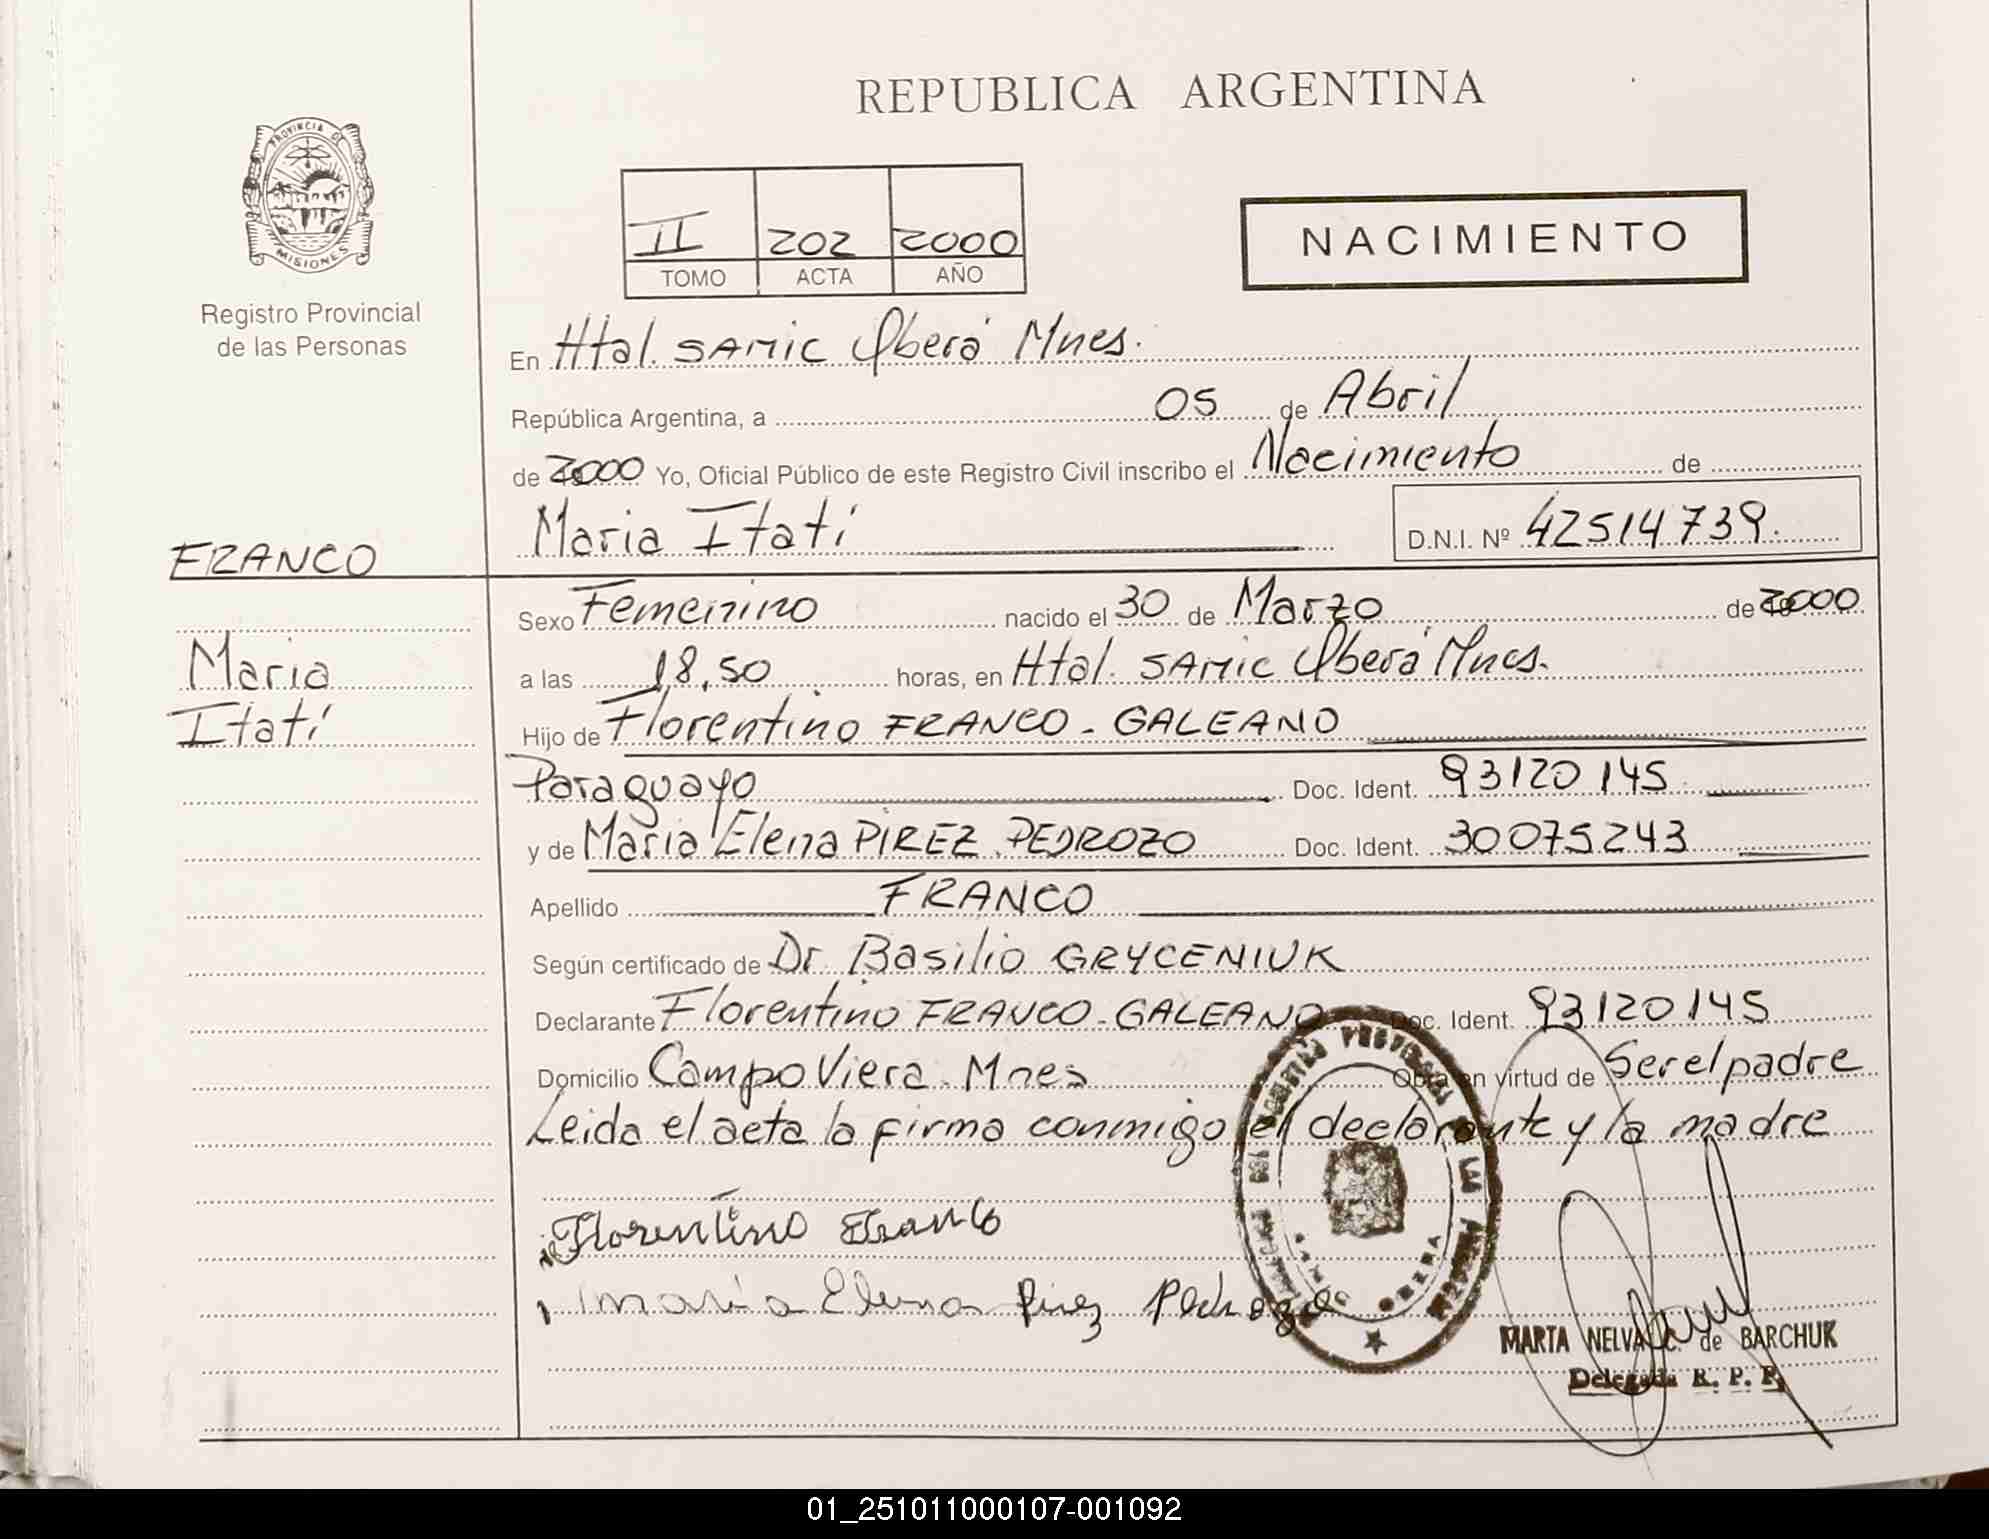 REPUBLICA ARGENTINA
PROVINCIA DE
MISIONES
Registro Provincial
de las Personas
II 202 2000
TOMO ACTA AÑO
NACIMIENTO
En Htal. SAMIC Oberá Mnes.
República Argentina, a 05 de Abril
de 2000 Yo, Oficial Público de este Registro Civil inscribo el Nacimiento de
Maria Itatí D.N.I. Nº 42514739.
FRANCO
Maria
Itatí
Sexo Femenino nacido el 30 de Marzo de 2000
a las 18,50 horas, en Htal. SAMIC Oberá Mnes.
Hijo de Florentino FRANCO - GALEANO
Paraguayo Doc. Ident. 93120145
y de Maria Elena PIREZ PEDROZO Doc. Ident. 30075243
Apellido FRANCO
Según certificado de Dr. Basilio GRYCENIUK
Declarante Florentino FRANCO - GALEANO Doc. Ident. 93120145
Domicilio Campo Viera - Mnes Obra en virtud de Ser el padre
Leida el acta la firma conmigo el declarante y la madre
Florentino Franco
maria Elena Pirez Pedrozo
MARTA NELVA C. de BARCHUK
Delegada R. P. P.
01_251011000107-001092